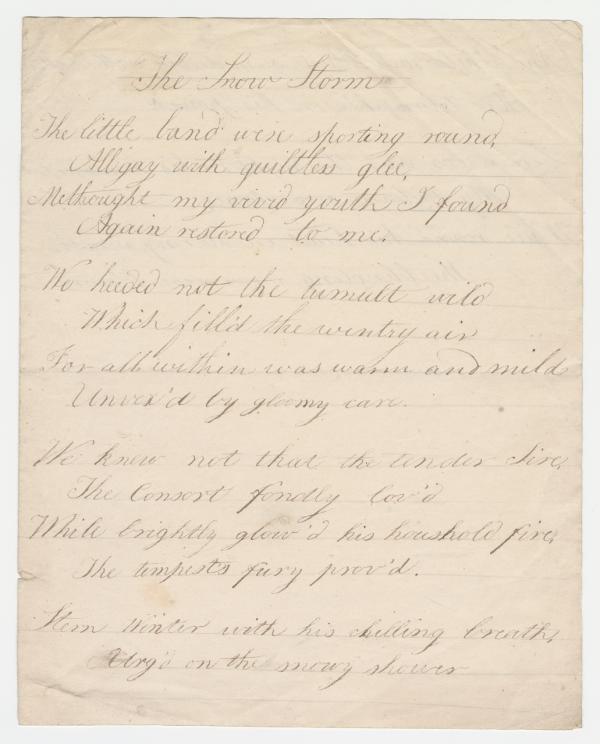 The Snow Storm
The little band were sporting round,
All gay with guiltless glee,
Methought my vivid youth I found
Again restored to me.
We heeded not the tumult wild
Which fill'd the wintry air
For all within was warm and mild
Unvex'd by gloomy care.
We knew not that the tender Sire,
The Consort fondly lov'd
While brightly glow'd his household fire,
The tempests fury prov'd.
Stern Winter with his chilling breath,
Urg'd on the snowy shower